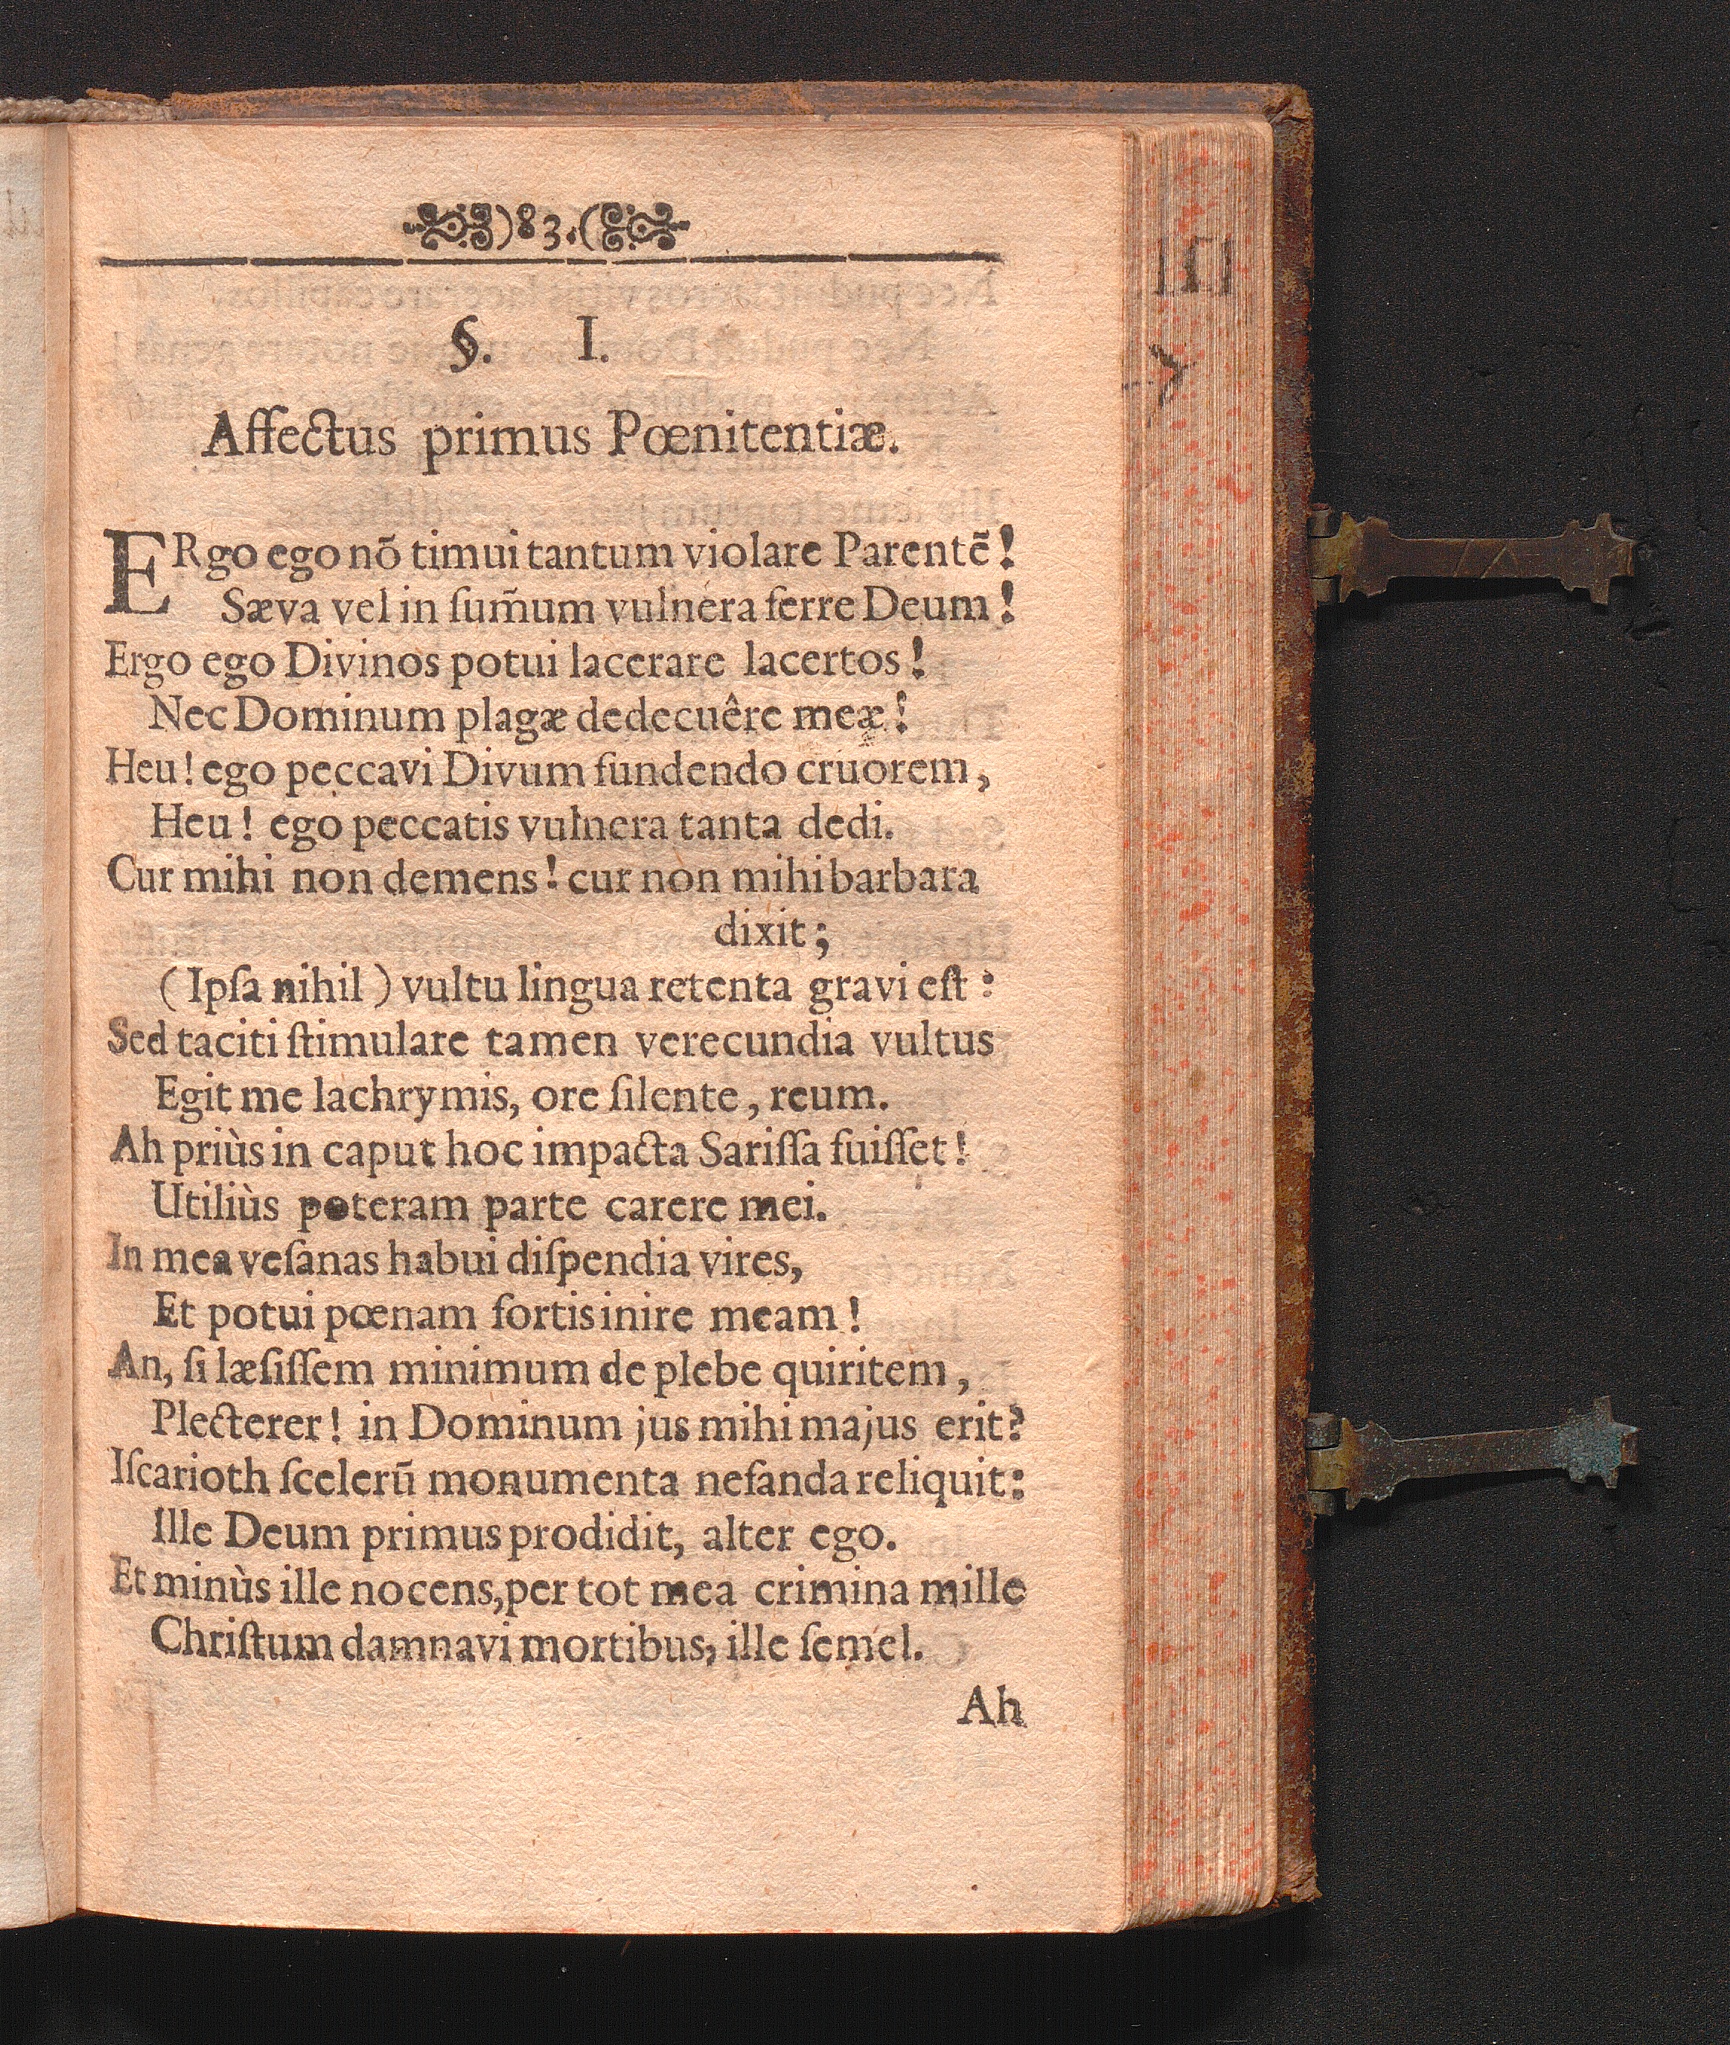 )83.(
§. I.
Affectus primus Pœnitentiæ.
ERgo ego nō timui tantum violare Parentē!
Sæva vel in ſum̃um vulnera ferre Deum!
Ergo ego Divinos potui lacerare lacertos!
Nec Dominum plagæ dedecuêre meæ!
Heu! ego peccavi Divum fundendo cruorem,
Heu! ego peccatis vulnera tanta dedi.
Cur mihi non demens! cur non mihi barbara
dixit;
(Ipſa nihil) vultu lingua retenta gravi eſt:
Sed taciti ſtimulare tamen verecundia vultus
Egit me lachrymis, ore ſilente, reum.
Ah priùs in caput hoc impacta Sariſſa fuiſſet!
Utiliùs poteram parte carere mei.
In mea veſanas habui diſpendia vires,
Et potui pœnam fortis inire meam!
An, ſi læſiſſem minimum de plebe quiritem,
Plecterer! in Dominum jus mihi majus erit?
Iſcarioth ſcelerū monumenta nefanda reliquit:
Ille Deum primus prodidit, alter ego.
Et minùs ille nocens, per tot mea crimina mille
Chriſtum damnavi mortibus, ille ſemel.
Ah